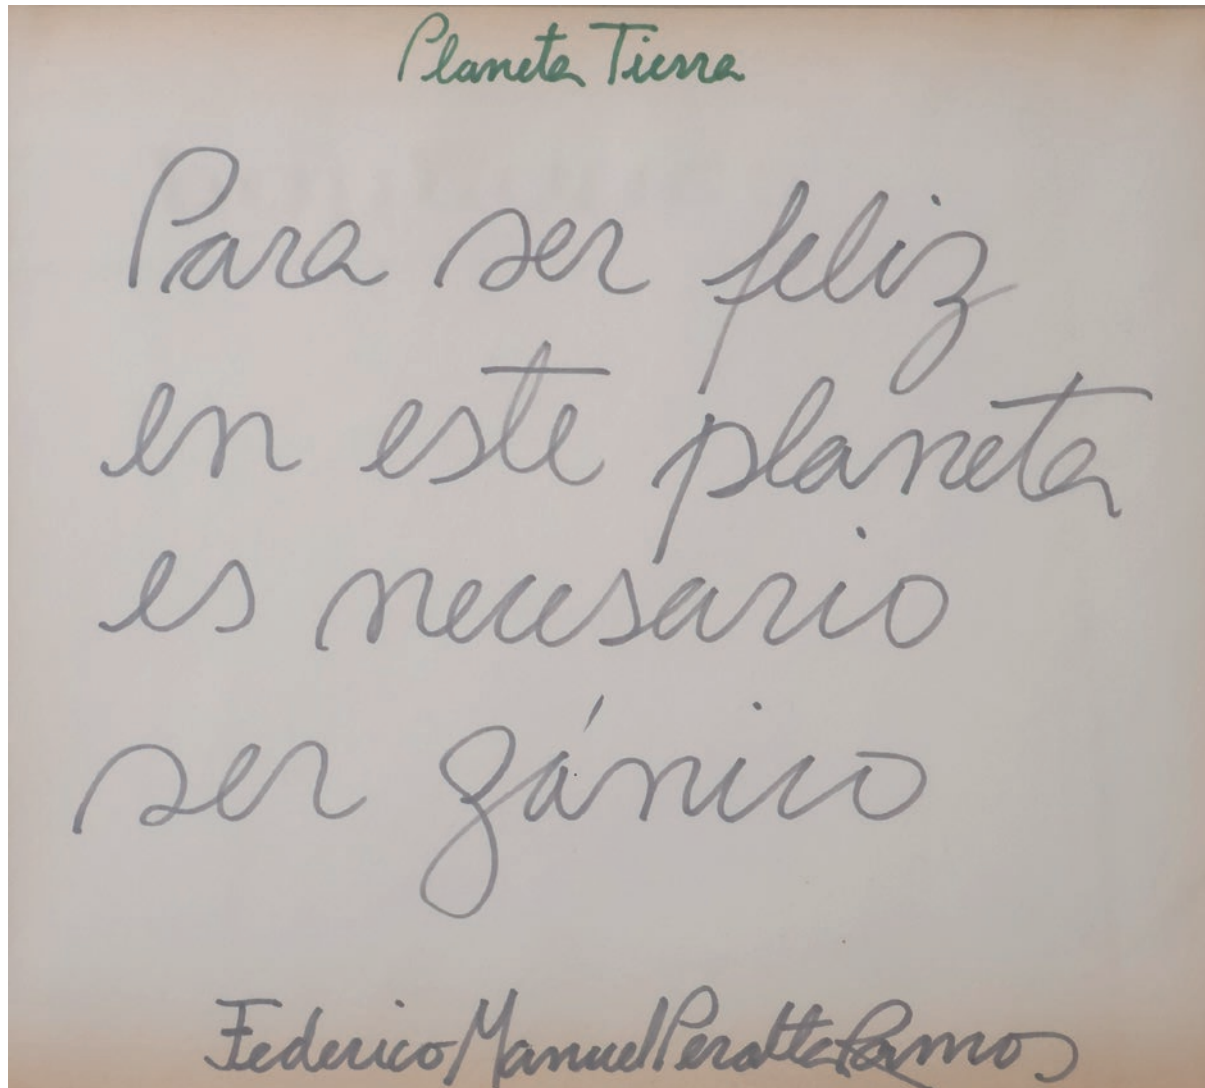 Planeta Tierra
Para ser feliz
en este planeta
es necesario
ser gánico
Federico Manuel Peralta Ramos